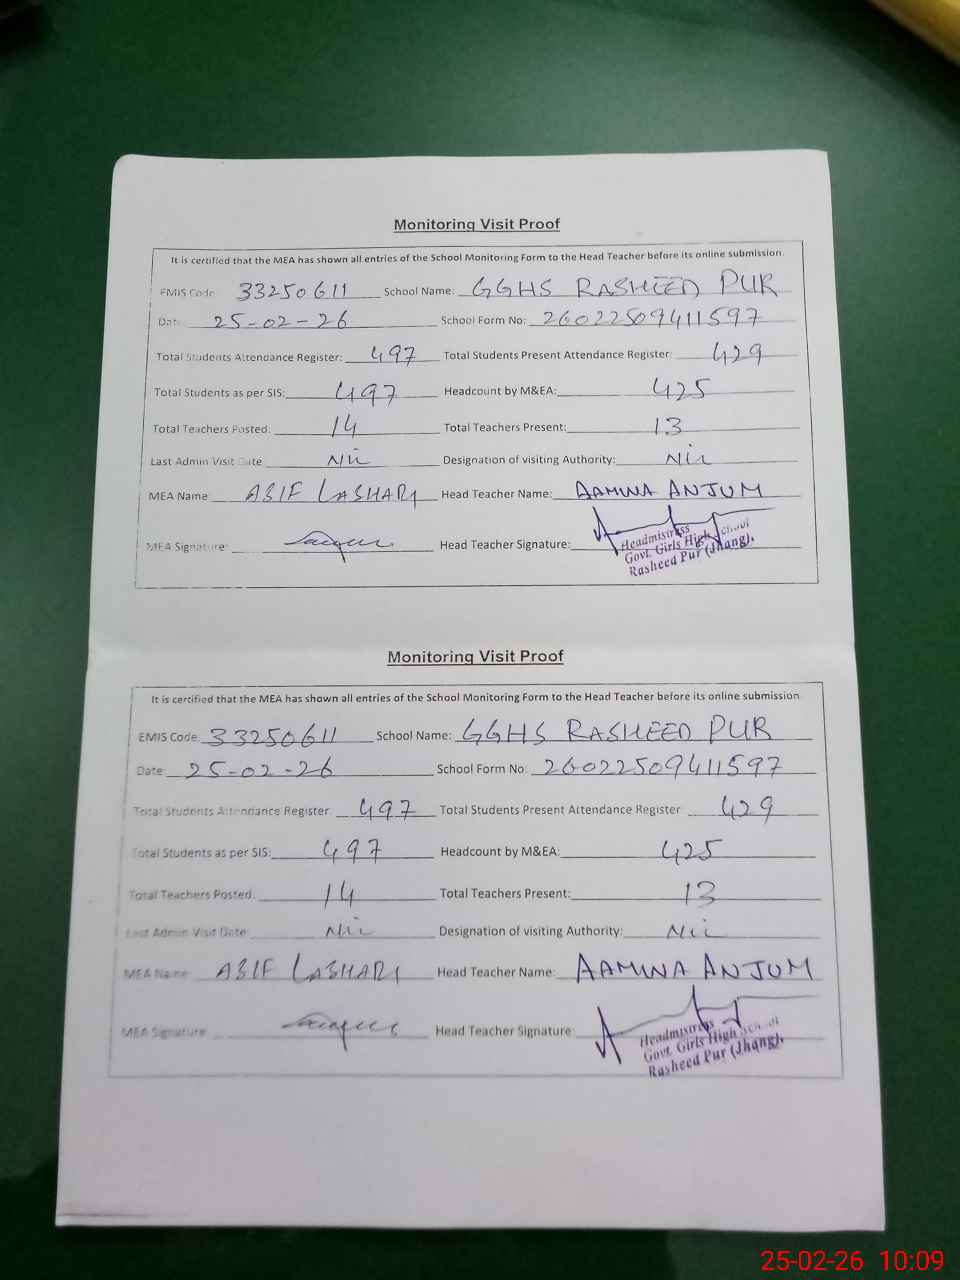 Monitoring Visit Proof
It is certified that the MEA has shown all entries of the School Monitoring Form to the Head Teacher before its online submission.
EMIS Code 33250611 School Name: GGHS RASHEED PUR
Date 25-02-26 School Form No: 26022509411597
Total Students Attendance Register: 497 Total Students Present Attendance Register: 429
Total Students as per SIS: 497 Headcount by M&EA: 425
Total Teachers Posted: 14 Total Teachers Present: 13
Last Admin Visit Date Nil Designation of visiting Authority: Nil
MEA Name ASIF LASHARI Head Teacher Name: AAMINA ANJUM
MEA Signature: Head Teacher Signature:
Headmistress
Govt. Girls High School
Rasheed Pur (Jhang).
Monitoring Visit Proof
It is certified that the MEA has shown all entries of the School Monitoring Form to the Head Teacher before its online submission
EMIS Code 33250611 School Name: GGHS RASHEED PUR
Date 25-02-26 School Form No: 26022509411597
Total Students Attendance Register 497 Total Students Present Attendance Register 429
Total Students as per SIS: 497 Headcount by M&EA: 425
Total Teachers Posted: 14 Total Teachers Present: 13
Last Admin Visit Date Nil Designation of visiting Authority: Nil
MEA Name ASIF LASHARI Head Teacher Name: AAMINA ANJUM
MEA Signature Head Teacher Signature:
Headmistress
Govt. Girls High School
Rasheed Pur (Jhang).
25-02-26 10:09